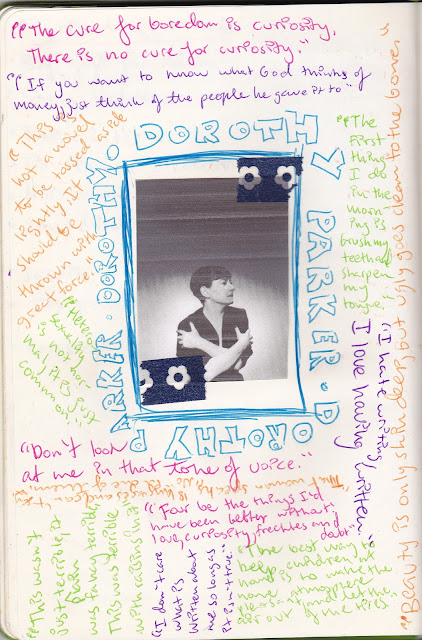 "The cure for boredom is curiosity.
There is no cure for curiosity."
"If you want to know what God thinks of
money, just think of the people he gave it to"
"This is
not a novel
to be tossed aside
lightly. It
should be
thrown with
great force."
DOROTHY PARKER · DOROTHY PARKER · DOROTHY
"The
first
thing
I do
in the
morn
ing is
brush my
teeth and
sharpen
my
tongue."
"Beauty is only skin deep, but ugly goes clean to the bone."
"I hate writing,
I love having written."
"Heterosexuality
is not nor
mal, it is just
common."
"Don't look
at me in that tone of voice."
"Four be the things I'd
have been better without:
love, curiosity, freckles and
doubt"
"This wasn't
just terrible
plain
was fancy terrible
This was terrible
with raisins in it"
"I don't care
what is
written about
me so long as
it isn't true."
"The best way to
keep children
home is to make the
home atmosphere
pleasant and let the
air out of the tires."